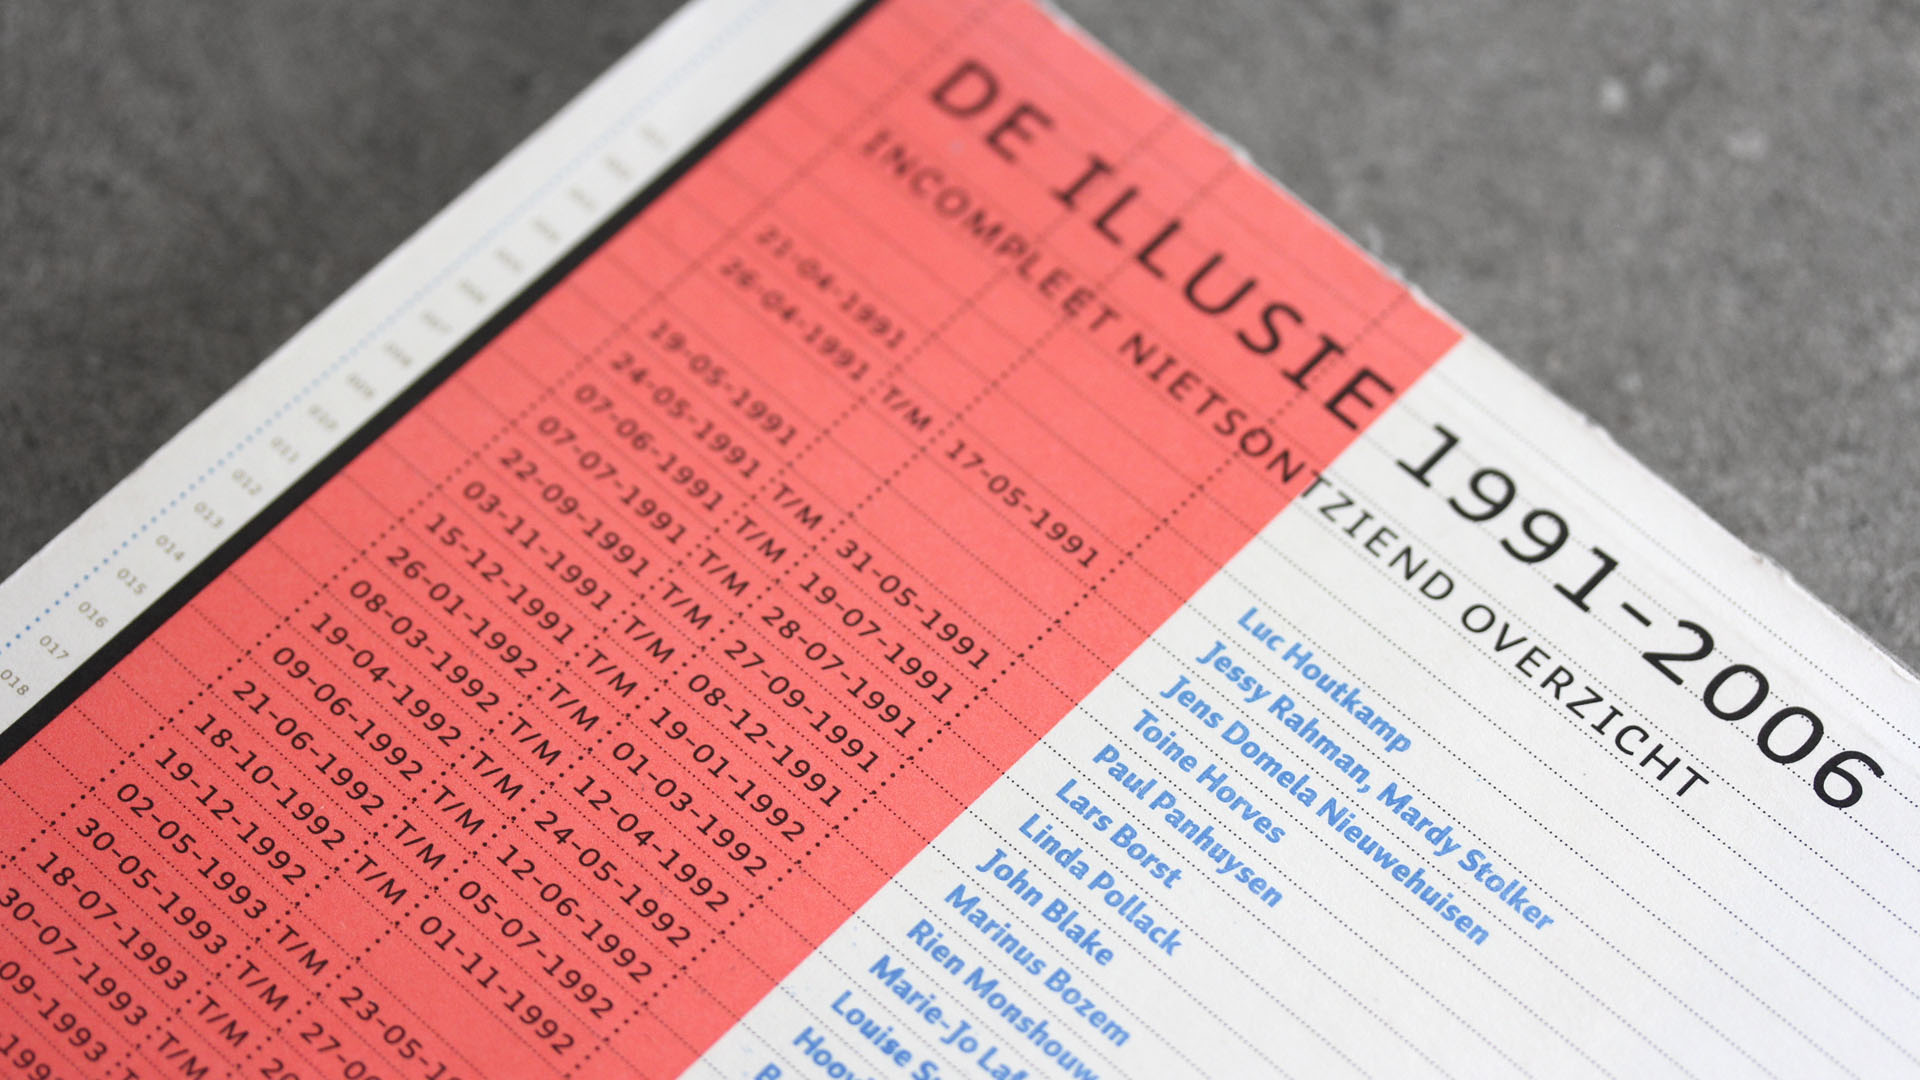 DE ILLUSIE 1991-2006
INCOMPLEET NIETSONTZIEND OVERZICHT
21-04-1991
26-04-1991 T/M 17-05-1991
19-05-1991
24-05-1991 T/M 31-05-1991
07-06-1991 T/M 19-07-1991
07-07-1991 T/M 28-07-1991
22-09-1991 T/M 27-09-1991
03-11-1991 T/M 08-12-1991
15-12-1991 T/M 19-01-1992
26-01-1992 T/M 01-03-1992
08-03-1992 T/M 12-04-1992
19-04-1992 T/M 24-05-1992
09-06-1992 T/M 12-06-1992
21-06-1992 T/M 05-07-1992
18-10-1992 T/M 01-11-1992
19-12-1992
02-05-1993 T/M 23-05-1
30-05-1993 T/M 27-0
18-07-1993 T/M 20
30-07-1993 T/M
09-1993
Luc Houtkamp
Jessy Rahman, Mardy Stolker
Jens Domela Nieuwehuisen
Toine Horves
Paul Panhuysen
Lars Borst
Linda Pollack
John Blake
Marinus Bozem
Rien Monshouw
Marie-Jo Laf
Louise S
Hoov
011
012
013
014
015
016
017
018